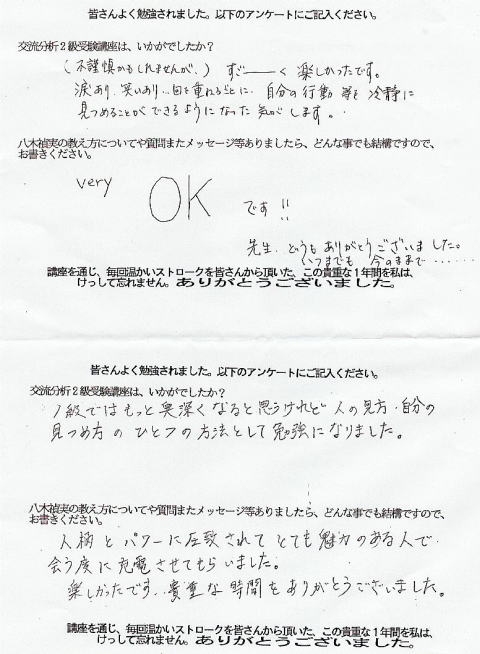 皆さんよく勉強されました。以下のアンケートにご記入ください。
交流分析２級受験講座は、いかがでしたか？
(不謹慎かもしれませんが、) すご――く 楽しかったです。
涙あり、笑いあり…回を重ねるごとに、自分の行動 等を 冷静に
見つめることができるようになった気がします。
八木禎実の教え方についてや質問またメッセージ等ありましたら、どんな事でも結構ですので、
お書きください。
very OK です!!
先生、どうもありがとうございました。
いつまでも 今のままで……
講座を通じ、毎回温かいストロークを皆さんから頂いた、この貴重な１年間を私は、
けっして忘れません。ありがとうございました。
皆さんよく勉強されました。以下のアンケートにご記入ください。
交流分析２級受験講座は、いかがでしたか？
1級ではもっと奥深くなると思うけれど 人の見方・自分の
見つめ方 の ひとつの方法として勉強になりました。
八木禎実の教え方についてや質問またメッセージ等ありましたら、どんな事でも結構ですので、
お書きください。
人柄とパワーに圧倒されて とても魅力のある人で
会う度に充電させてもらいました。
楽しかったです。貴重な時間をありがとうございました。
講座を通じ、毎回温かいストロークを皆さんから頂いた、この貴重な１年間を私は、
けっして忘れません。ありがとうございました。